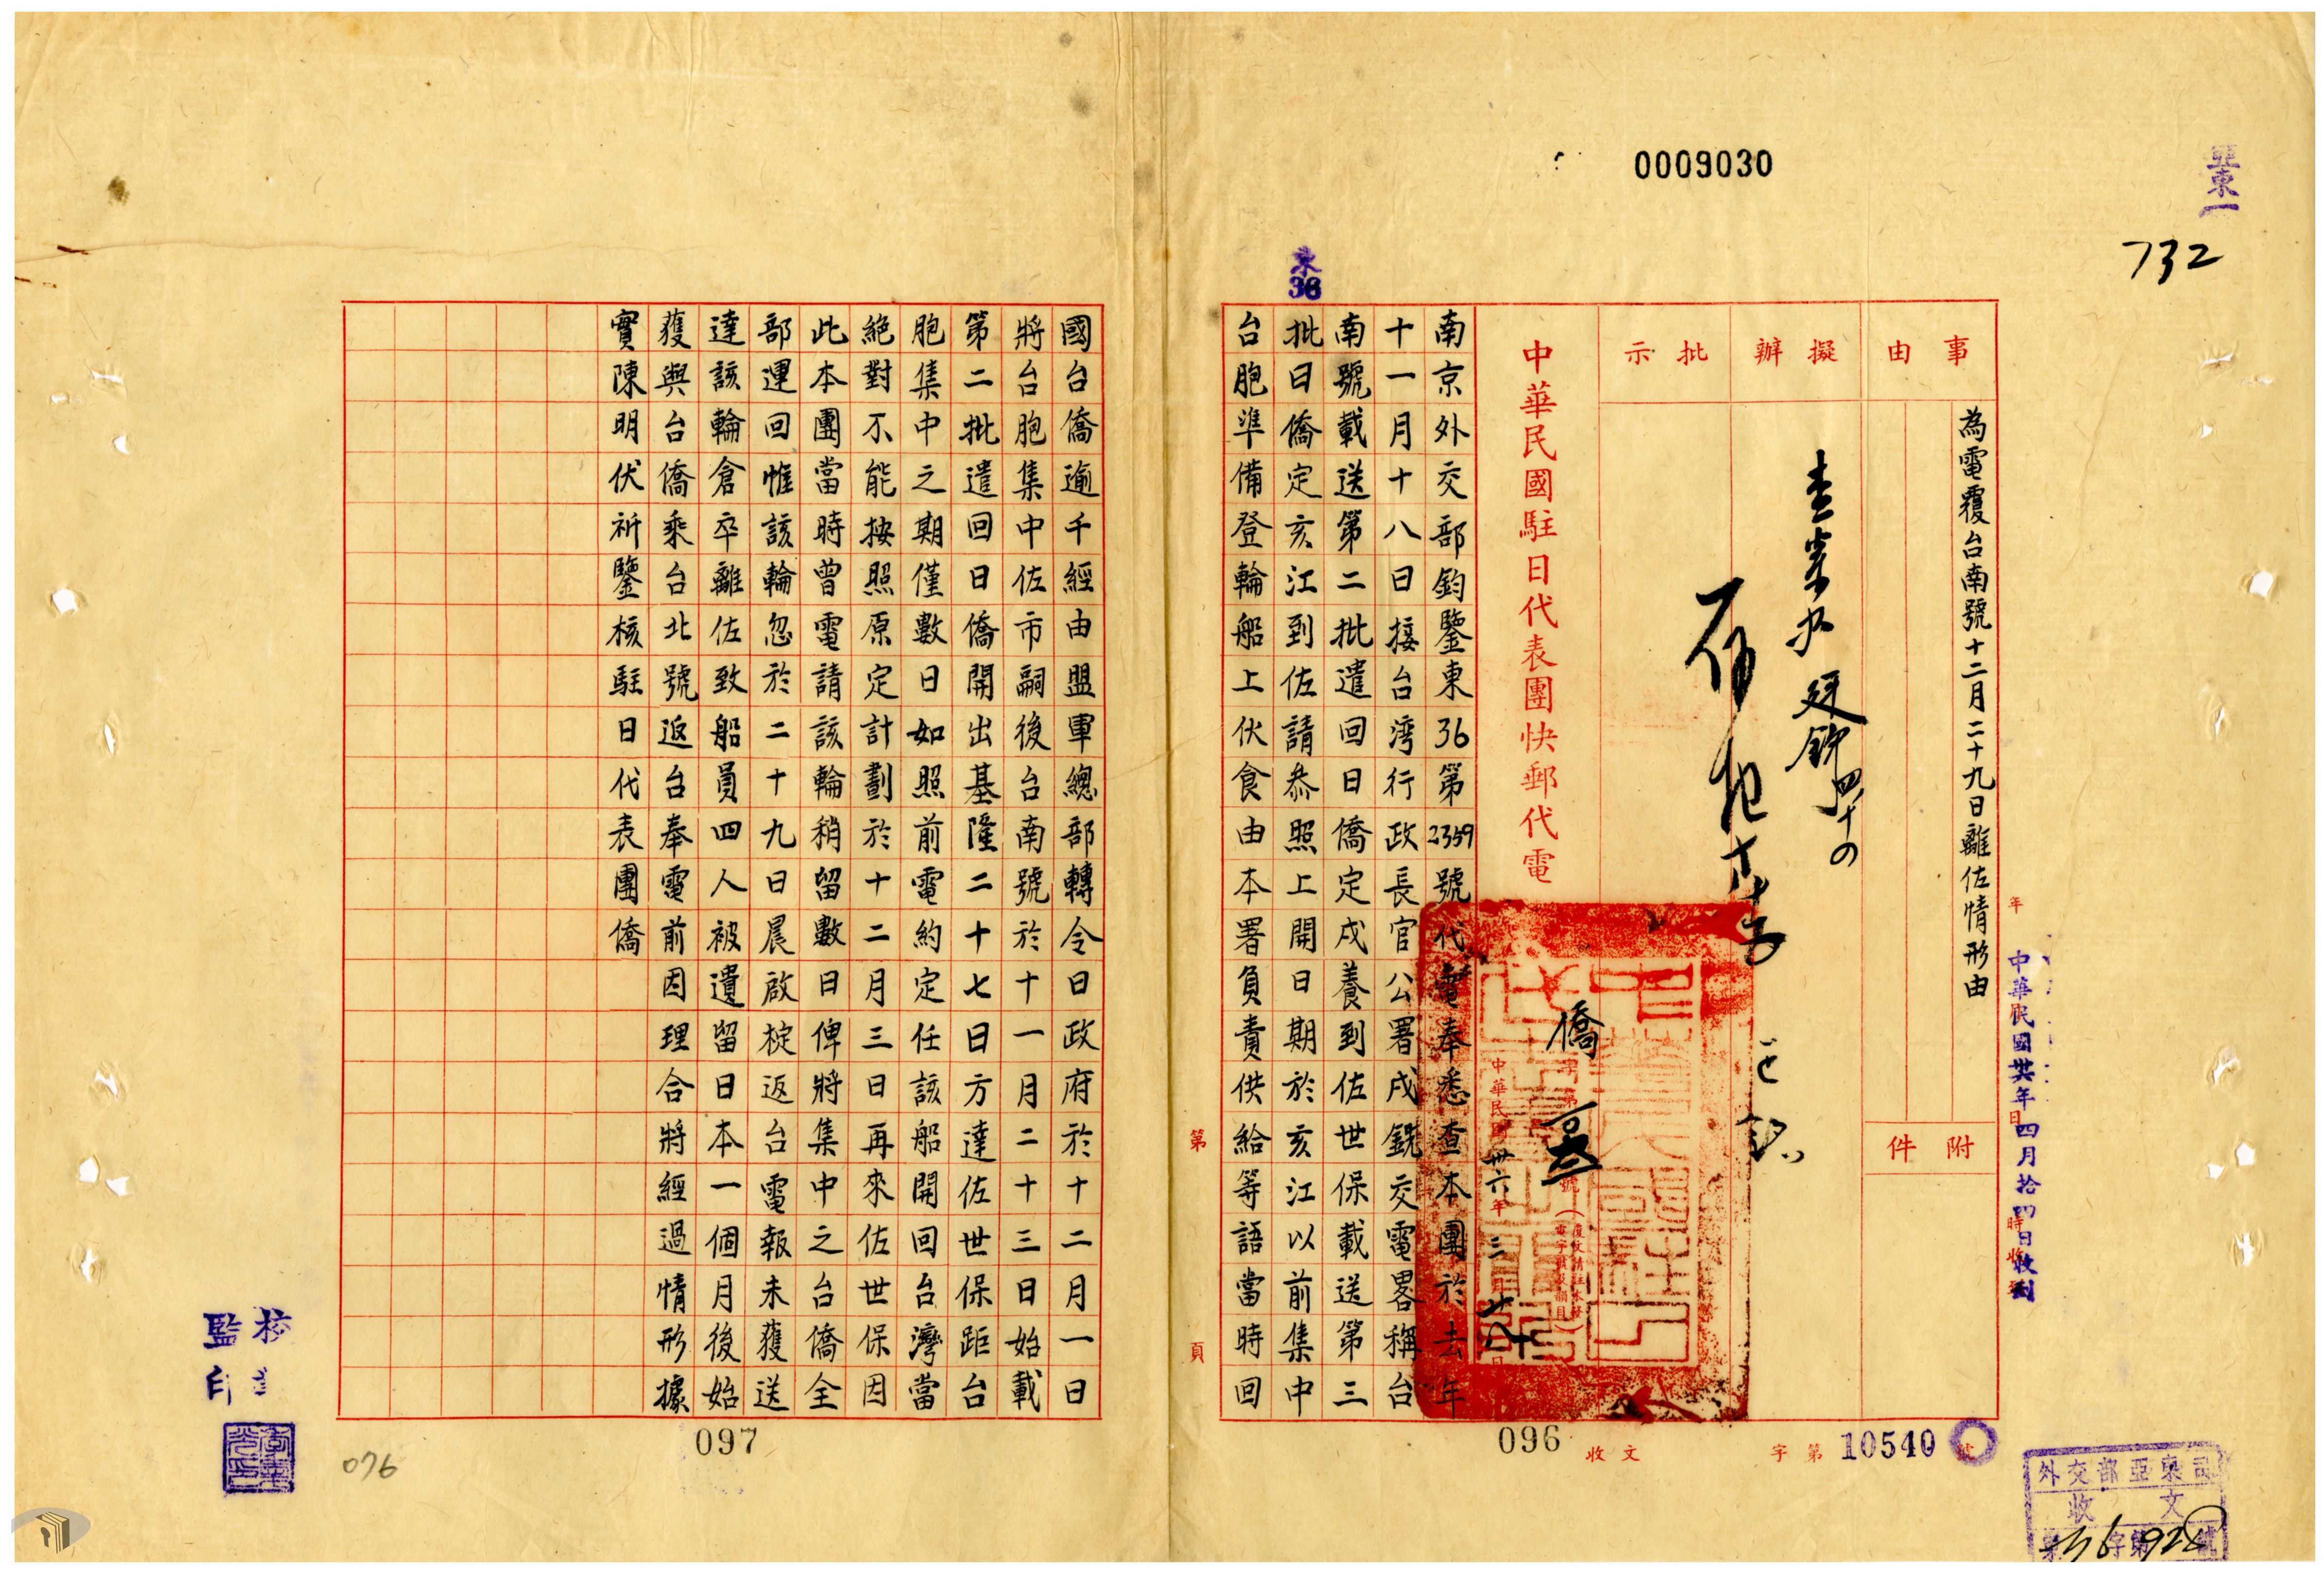 0009030
亞東一
732
東36
事由
擬辦
批示
為電覆台南號十二月二十九日離佐情形由
附件
中華民國卅六年四月拾四日收到
中華民國駐日代表團快郵代電
僑字第 號
中華民國卅六年三月十八日
南京外交部鈞鑒東36第2359號代電奉悉查本團於去年
十一月十八日接台灣行政長官公署戌銑交電畧稱台
南號載送第二批遣回日僑定戌養到佐世保載送第三
批日僑定亥江到佐請恭照上開日期於亥江以前集中
台胞準備登輪船上伏食由本署負責供給等語當時回
國台僑逾千經由盟軍總部轉令日政府於十二月一日
將台胞集中佐市嗣後台南號於十一月二十三日始載
第二批遣回日僑開出基隆二十七日方達佐世保距台
胞集中之期僅數日如照前電約定任該船開回台灣當
絕對不能按照原定計劃於十二月三日再來佐世保因
此本團當時曾電請該輪稍留數日俾將集中之台僑全
部運回惟該輪忽於二十九日晨啟椗返台電報未獲送
達該輪倉卒離佐致船員四人被遺留日本一個月後始
獲與台僑乘台北號返台奉電前因理合將經過情形據
實陳明伏祈鑒核駐日代表團僑
第 頁
096
097
076
收文 字第10540號
監印
校
外交部亞東司
收文